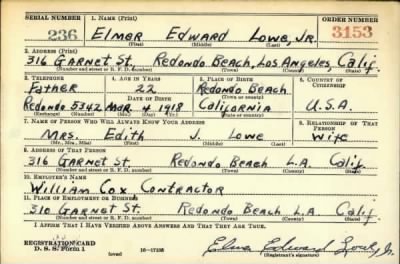 SERIAL NUMBER 1. NAME (Print) ORDER NUMBER
236 Elmer Edward Lowe, Jr. 3153
(First) (Middle) (Last)
2. ADDRESS (Print)
316 Garnet St. Redondo Beach, Los Angeles Calif.
(Number and street or R. F. D. number) (Town) (County) (State)
3. TELEPHONE 4. AGE IN YEARS 5. PLACE OF BIRTH 6. COUNTRY OF CITIZENSHIP
Father 22 Redondo Beach
DATE OF BIRTH (Town or county)
Redondo 5342 Mar. 4 1918 California U.S.A.
(Exchange) (Number) (Mo.) (Day) (Yr.) (State or country)
7. NAME OF PERSON WHO WILL ALWAYS KNOW YOUR ADDRESS 8. RELATIONSHIP OF THAT PERSON
Mrs. Edith J. Lowe Wife
(Mr., Mrs., Miss) (First) (Middle) (Last)
9. ADDRESS OF THAT PERSON
316 Garnet St. Redondo Beach L.A. Calif.
(Number and street or R. F. D. number) (Town) (County) (State)
10. EMPLOYER'S NAME
William Cox Contractor
11. PLACE OF EMPLOYMENT OR BUSINESS
310 Garnet St. Redondo Beach L.A. Calif.
(Number and street or R. F. D. number) (Town) (County) (State)
I AFFIRM THAT I HAVE VERIFIED ABOVE ANSWERS AND THAT THEY ARE TRUE.
REGISTRATION CARD
D. S. S. Form 1 16-17105 Elmer Edward Lowe, Jr.